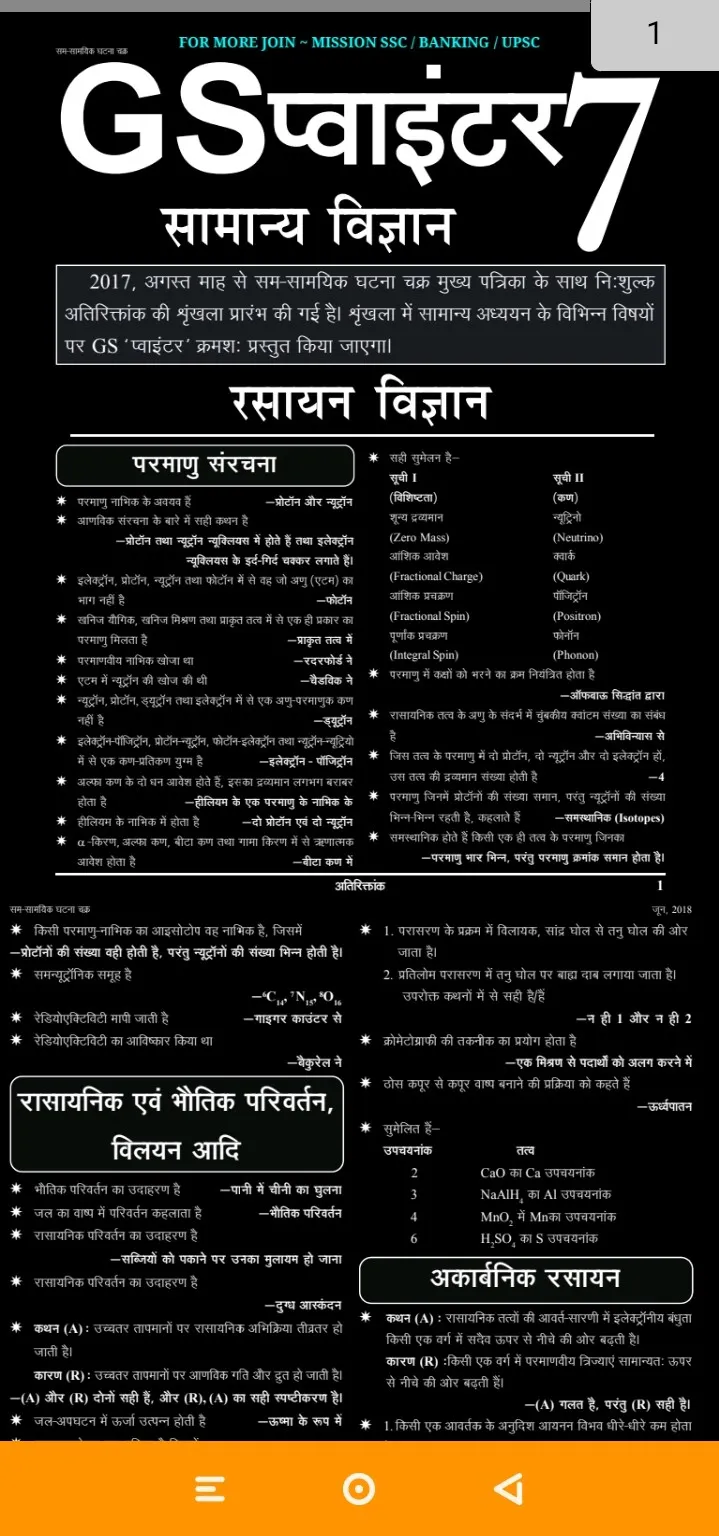 1
FOR MORE JOIN ~ MISSION SSC / BANKING / UPSC
सम-सामयिक घटना चक्र
GSप्वाइंटर 7
सामान्य विज्ञान
2017, अगस्त माह से सम-सामयिक घटना चक्र मुख्य पत्रिका के साथ नि:शुल्क
अतिरिक्तांक की शृंखला प्रारंभ की गई है। शृंखला में सामान्य अध्ययन के विभिन्न विषयों
पर GS ‘प्वाइंटर’ क्रमशः प्रस्तुत किया जाएगा।
रसायन विज्ञान
परमाणु संरचना
✷ परमाणु नाभिक के अवयव हैं —प्रोटॉन और न्यूट्रॉन
✷ आणविक संरचना के बारे में सही कथन है
—प्रोटॉन तथा न्यूट्रॉन न्यूक्लियस में होते हैं तथा इलेक्ट्रॉन
न्यूक्लियस के इर्द-गिर्द चक्कर लगाते हैं।
✷ इलेक्ट्रॉन, प्रोटॉन, न्यूट्रॉन तथा फोटॉन में से वह जो अणु (एटम) का
भाग नहीं है —फोटॉन
✷ खनिज यौगिक, खनिज मिश्रण तथा प्राकृत तत्व में से एक ही प्रकार का
परमाणु मिलता है —प्राकृत तत्व में
✷ परमाणवीय नाभिक खोजा था —रदरफोर्ड ने
✷ एटम में न्यूट्रॉन की खोज की थी —चैडविक ने
✷ न्यूट्रॉन, प्रोटॉन, ड्यूट्रॉन तथा इलेक्ट्रॉन में से एक अणु-परमाणुक कण
नहीं है —ड्यूट्रॉन
✷ इलेक्ट्रॉन-पॉजिट्रॉन, प्रोटॉन-न्यूट्रॉन, फोटॉन-इलेक्ट्रॉन तथा न्यूट्रॉन-न्यूट्रियो
में से एक कण-प्रतिकण युग्म है —इलेक्ट्रॉन - पॉजिट्रॉन
✷ अल्फा कण के दो धन आवेश होते हैं, इसका द्रव्यमान लगभग बराबर
होता है —हीलियम के एक परमाणु के नाभिक के
✷ हीलियम के नाभिक में होता है —दो प्रोटॉन एवं दो न्यूट्रॉन
✷ α -किरण, अल्फा कण, बीटा कण तथा गामा किरण में से ऋणात्मक
आवेश होता है —बीटा कण में
✷ सही सुमेलन है–
सूची I सूची II
(विशिष्टता) (कण)
शून्य द्रव्यमान न्यूट्रिनो
(Zero Mass) (Neutrino)
आंशिक आवेश क्वार्क
(Fractional Charge) (Quark)
आंशिक प्रचक्रण पॉजिट्रॉन
(Fractional Spin) (Positron)
पूर्णांक प्रचक्रण फोनॉन
(Integral Spin) (Phonon)
✷ परमाणु में कक्षों को भरने का क्रम नियंत्रित होता है
—ऑफबाऊ सिद्धांत द्वारा
✷ रासायनिक तत्व के अणु के संदर्भ में चुंबकीय क्वांटम संख्या का संबंध
है —अभिविन्यास से
✷ जिस तत्व के परमाणु में दो प्रोटॉन, दो न्यूट्रॉन और दो इलेक्ट्रॉन हों,
उस तत्व की द्रव्यमान संख्या होती है —4
✷ परमाणु जिनमें प्रोटॉनों की संख्या समान, परंतु न्यूट्रॉनों की संख्या
भिन्न-भिन्न रहती है, कहलाते हैं —समस्थानिक (Isotopes)
✷ समस्थानिक होते हैं किसी एक ही तत्व के परमाणु जिनका
—परमाणु भार भिन्न, परंतु परमाणु क्रमांक समान होता है।
अतिरिक्तांक 1
सम-सामयिक घटना चक्र जून, 2018
✷ किसी परमाणु-नाभिक का आइसोटोप वह नाभिक है, जिसमें
—प्रोटॉनों की संख्या वही होती है, परंतु न्यूट्रॉनों की संख्या भिन्न होती है।
✷ समन्यूट्रॉनिक समूह है
—⁶C₁₄, ⁷N₁₅, ⁸O₁₆
✷ रेडियोएक्टिविटी मापी जाती है —गाइगर काउंटर से
✷ रेडियोएक्टिविटी का आविष्कार किया था
—बैकुरेल ने
रासायनिक एवं भौतिक परिवर्तन,
विलयन आदि
✷ भौतिक परिवर्तन का उदाहरण है —पानी में चीनी का घुलना
✷ जल का वाष्प में परिवर्तन कहलाता है —भौतिक परिवर्तन
✷ रासायनिक परिवर्तन का उदाहरण है
—सब्जियों को पकाने पर उनका मुलायम हो जाना
✷ रासायनिक परिवर्तन का उदाहरण है
—दुग्ध आस्कंदन
✷ कथन (A) : उच्चतर तापमानों पर रासायनिक अभिक्रिया तीव्रतर हो
जाती है।
कारण (R) : उच्चतर तापमानों पर आणविक गति और द्रुत हो जाती है।
—(A) और (R) दोनों सही हैं, और (R), (A) का सही स्पष्टीकरण है।
✷ जल-अपघटन में ऊर्जा उत्पन्न होती है —ऊष्मा के रूप में
✷ 1. परासरण के प्रक्रम में विलायक, सांद्र घोल से तनु घोल की ओर
जाता है।
2. प्रतिलोम परासरण में तनु घोल पर बाह्य दाब लगाया जाता है।
उपरोक्त कथनों में से सही है/हैं
—न ही 1 और न ही 2
✷ क्रोमेटोग्राफी की तकनीक का प्रयोग होता है
—एक मिश्रण से पदार्थों को अलग करने में
✷ ठोस कपूर से कपूर वाष्प बनाने की प्रक्रिया को कहते हैं
—ऊर्ध्वपातन
✷ सुमेलित हैं–
उपचयनांक तत्व
2 CaO का Ca उपचयनांक
3 NaAlH₄ का Al उपचयनांक
4 MnO₂ में Mnका उपचयनांक
6 H₂SO₄ का S उपचयनांक
अकार्बनिक रसायन
✷ कथन (A) : रासायनिक तत्वों की आवर्त-सारणी में इलेक्ट्रॉनीय बंधुता
किसी एक वर्ग में सदैव ऊपर से नीचे की ओर बढ़ती है।
कारण (R) :किसी एक वर्ग में परमाणवीय त्रिज्याएं सामान्यतः ऊपर
से नीचे की ओर बढ़ती हैं।
—(A) गलत है, परंतु (R) सही है।
✷ 1.किसी एक आवर्तक के अनुदिश आयनन विभव धीरे-धीरे कम होता